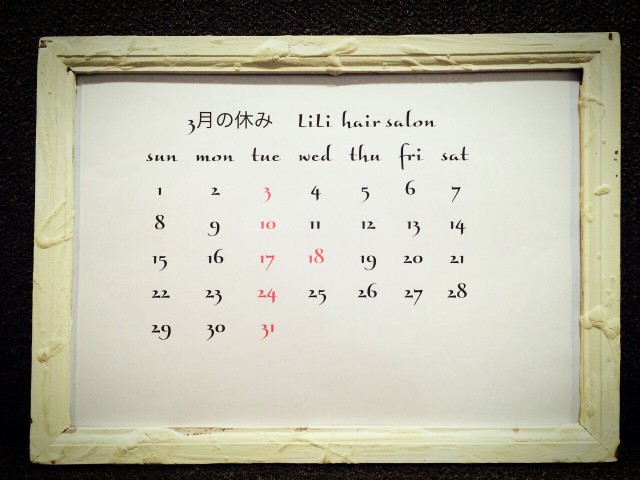 3月の休み LiLi hair salon
sun mon tue wed thu fri sat
1 2 3 4 5 6 7
8 9 10 11 12 13 14
15 16 17 18 19 20 21
22 23 24 25 26 27 28
29 30 31